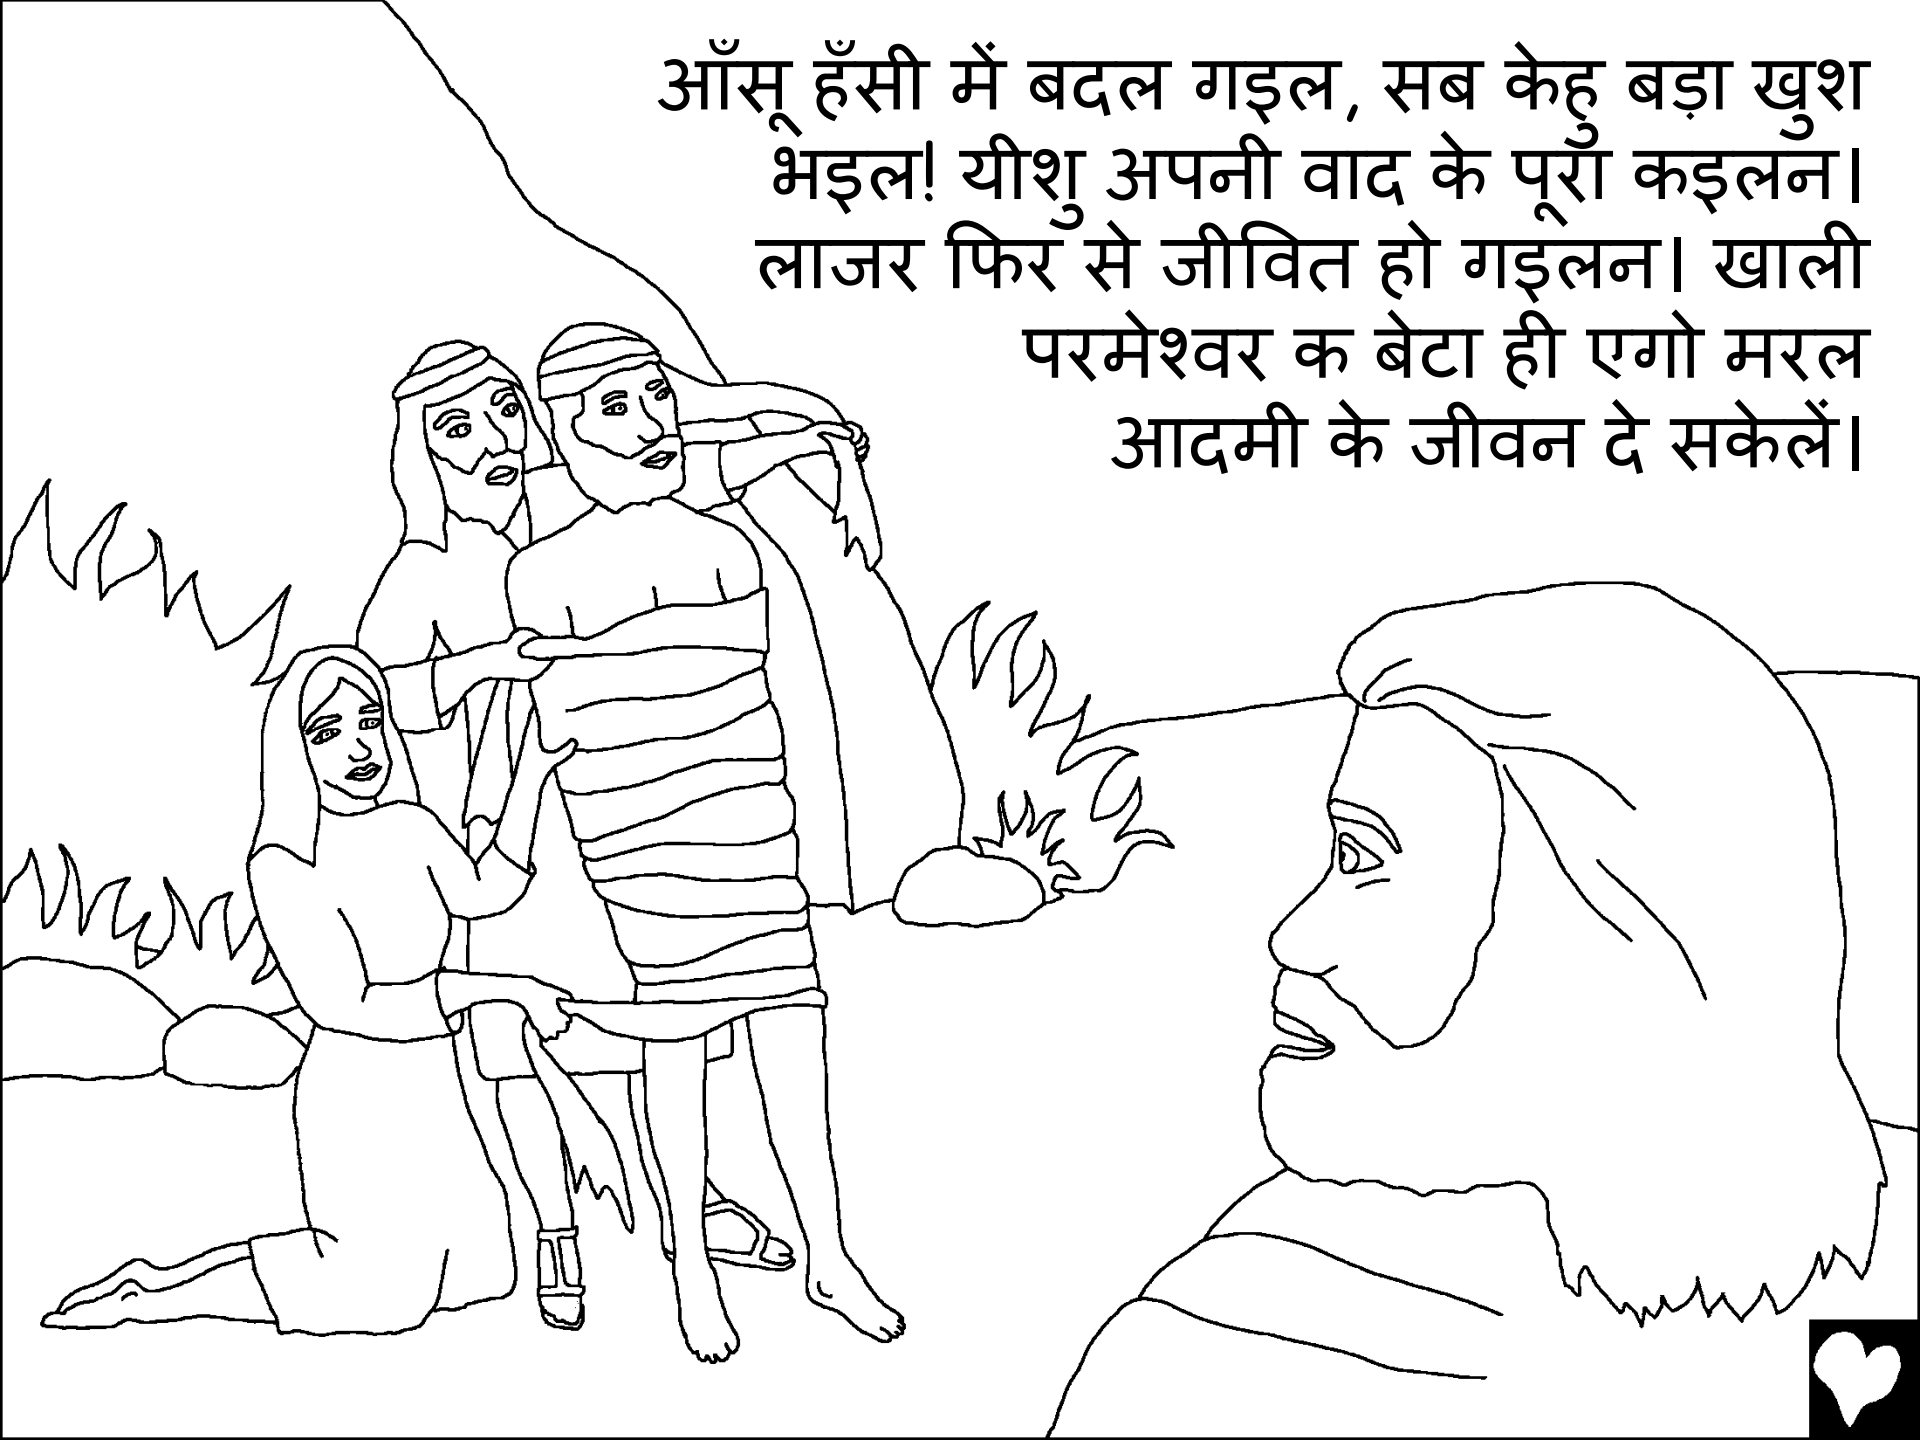 आँसू हँसी में बदल गइल, सब केहु बड़ा खुश
भइल! यीशु अपनी वाद के पूरा कइलन।
लाजर फिर से जीवित हो गइलन। खाली
परमेश्वर क बेटा ही एगो मरल
आदमी के जीवन दे सकेलें।